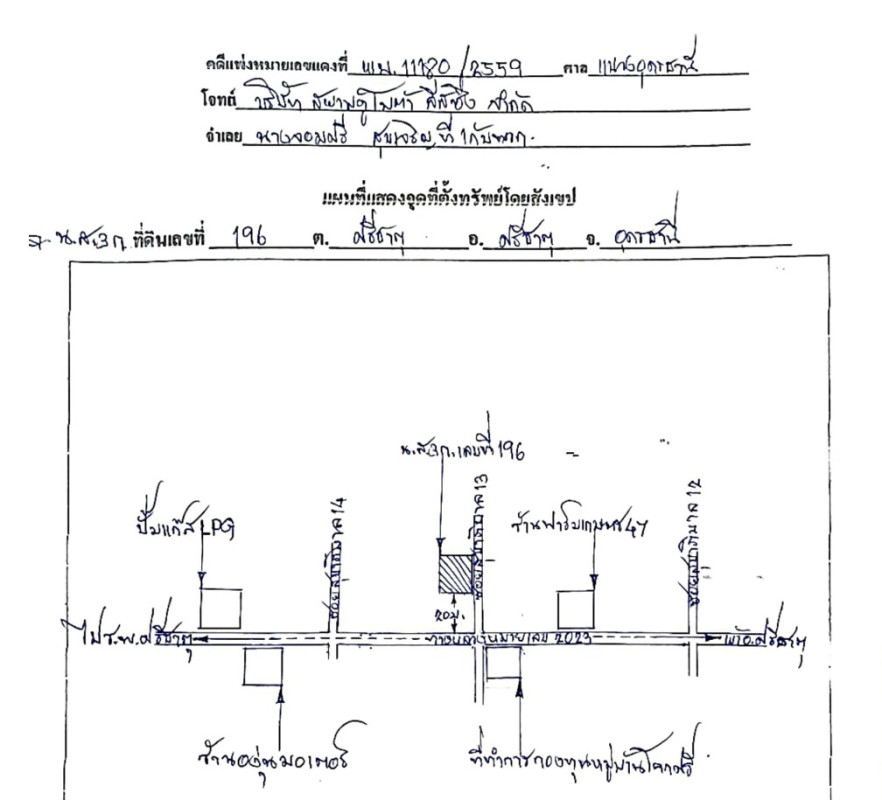 คดีแพ่งหมายเลขแดงที่ ผบ.11180/2559 ศาล แขวงอุดรธานี
โจทก์ บริษัท สยามคูโบต้า ลีสซิ่ง จำกัด
จำเลย นางจอมศรี ที่ 1 กับพวก
แผนที่แสดงจุดที่ตั้งทรัพย์โดยสังเขป
น.ส.3ก. ที่ดินเลขที่ 196 ต. ศรีธาตุ อ. ศรีธาตุ จ. อุดรธานี
น.ส.3ก. เลขที่ 196
ปั๊มแก๊ส LPG
ซอยสุขาภิบาล 14
ซอยสุขาภิบาล 13
ร้านฟาร์มเกษตร 47
ซอยสุขาภิบาล 12
20ม.
ไป ร.พ.ศรีธาตุ
ทางหลวงหมายเลข 2023
อ.ศรีธาตุ
ร้านองุ่นมอเตอร์
ที่ทำการกองทุนหมู่บ้านโคกศรี